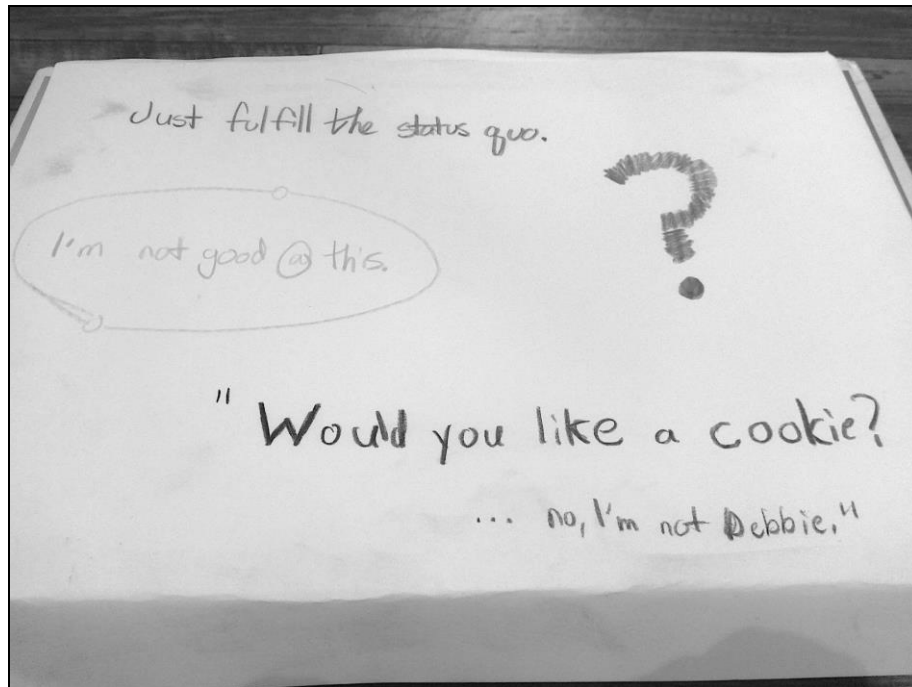 Just fulfill the status quo.
?
I'm not good @ this.
"Would you like a cookie?
... no, I'm not Debbie."